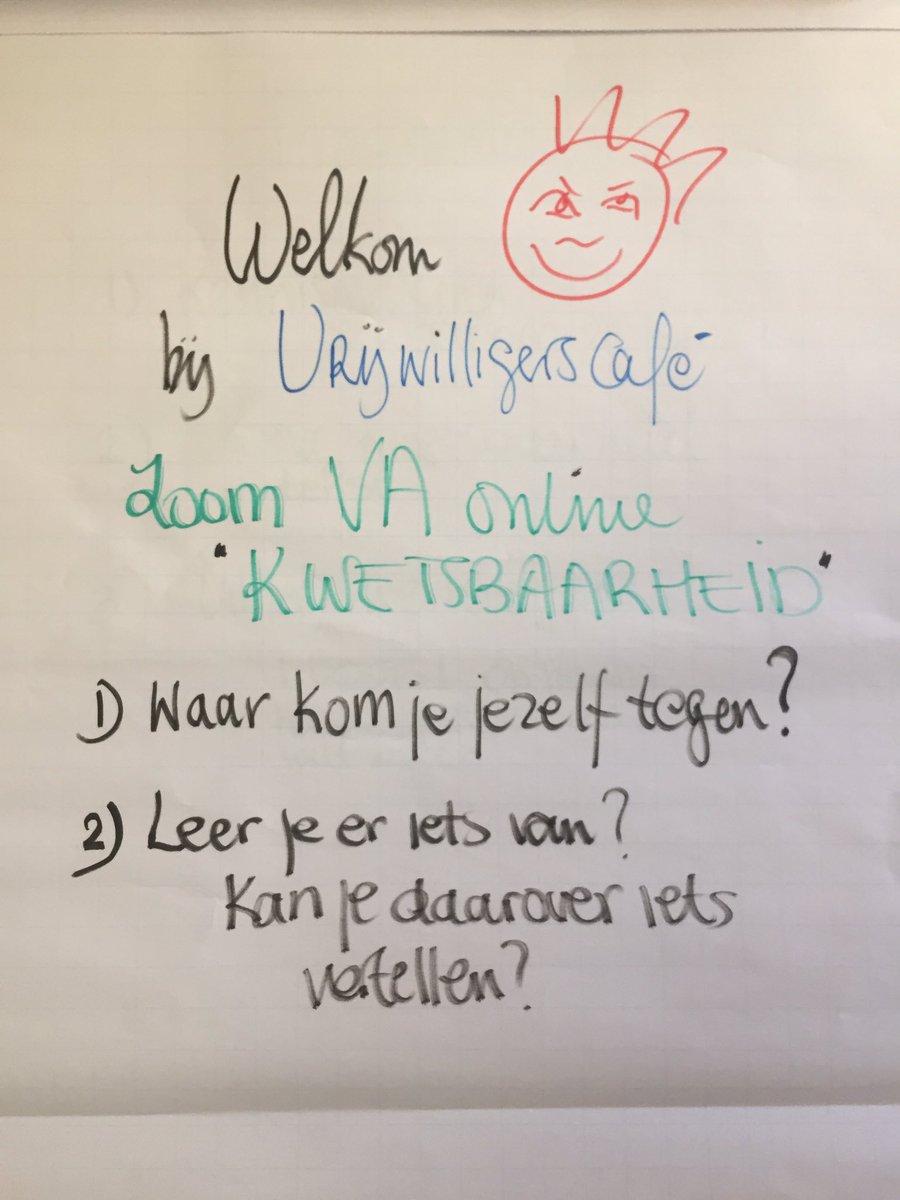 Welkom
bij Vrijwilligerscafé
Zoom VA online
"KWETSBAARHEID"
1) Waar kom je jezelf tegen?
2) Leer je er iets van?
Kan je daarover iets
vertellen?